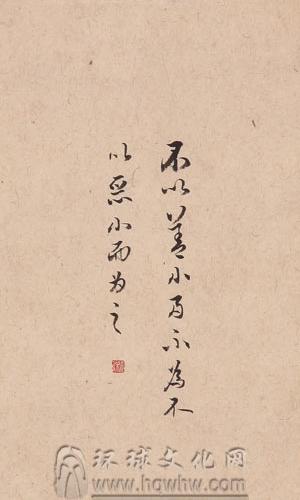 不以善小而不為不
以恶小而为之
环球文化网
www.hqwhw.com